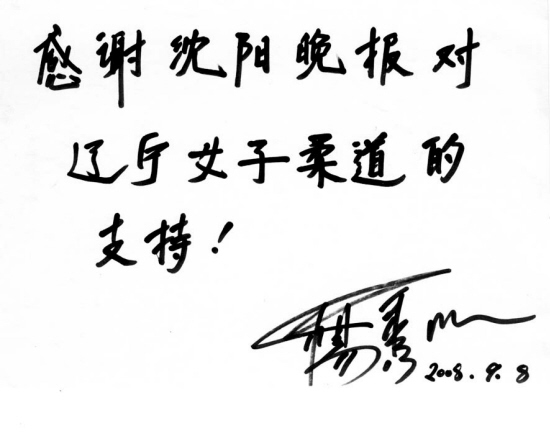 感谢沈阳晚报对
辽宁女子柔道的
支持！
杨秀
2008.9.8